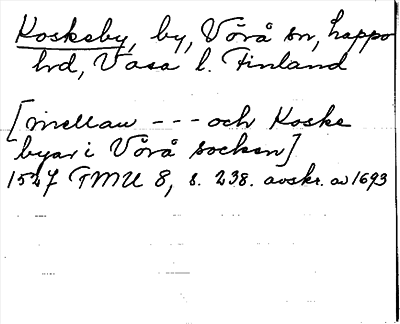 Koskeby, by, Vörå sn, happo
hrd, Vasa l. Finland
[mellan --- och Koske
byar i Vörå socken]
1527 FMU 8, s. 238. avskr. av 1693